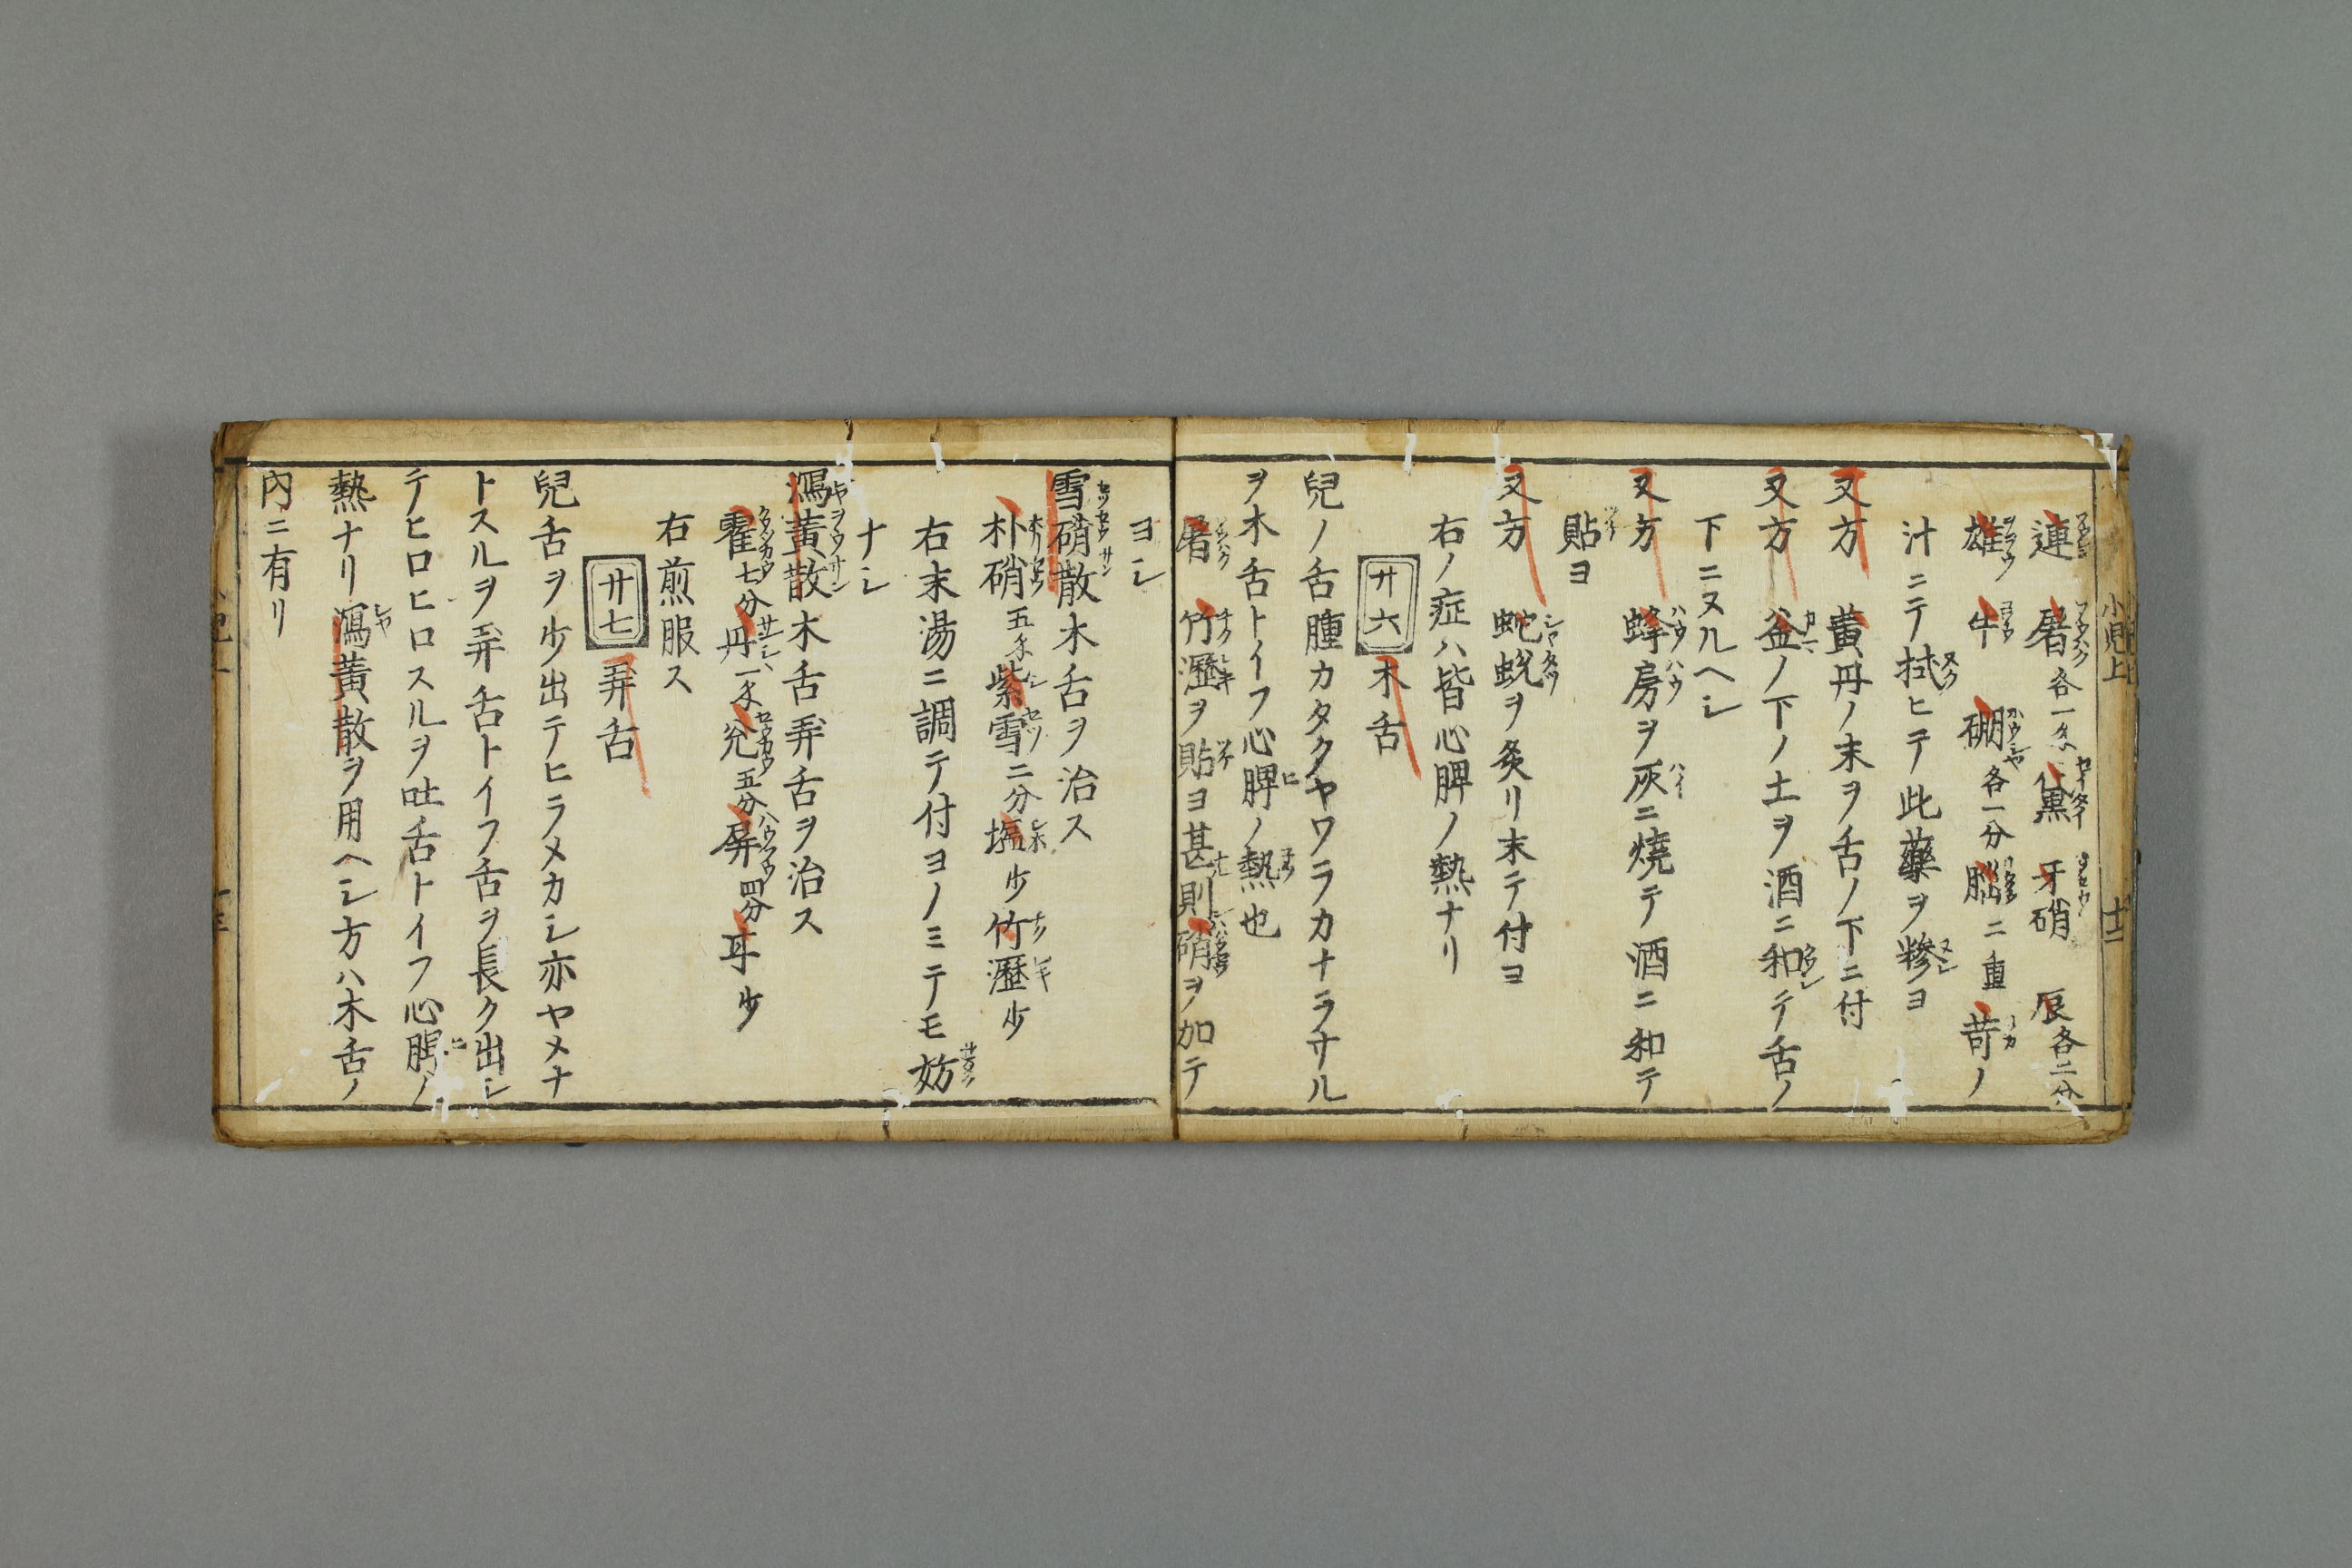 小児上
十二
連 屠各一匁 黛 牙硝 辰各二分
雄 牛 硼各一分 脳二重 苛ノ
汁ニテ拭ヒテ此藥ヲ糝ヨ
又方 黄丹ノ末ヲ舌ノ下ニ付
又方 釜ノ下ノ土ヲ酒ニ和テ舌ノ
下ニヌルヘシ
又方 蜂房ヲ灰ニ燒テ酒ニ和テ
貼ヨ
又方 蛇蛻ヲ炙リ末テ付ヨ
右ノ症ハ皆心脾ノ熱ナリ
廿六 木舌
兒ノ舌腫カタクヤワラカナラサル
ヲ木舌トイフ心脾ノ熱也
屠 竹瀝ヲ貼ヨ甚則硝ヲ加テ
ヨシ
雪硝散木舌ヲ治ス
朴硝五匁紫雪二分塩少竹瀝少
右末湯ニ調テ付ヨノミテモ妨
ナシ
瀉黄散木舌弄舌ヲ治ス
藿七分丹一匁兊五分屏四分耳少
右煎服ス
廿七 弄舌
兒舌ヲ少出テヒラメカシ亦ヤメナ
トスルヲ弄舌トイフ舌ヲ長ク出シ
テヒロヒロスルヲ吐舌トイフ心脾ノ
熱ナリ瀉黄散ヲ用ヘシ方ハ木舌ノ
内ニ有リ